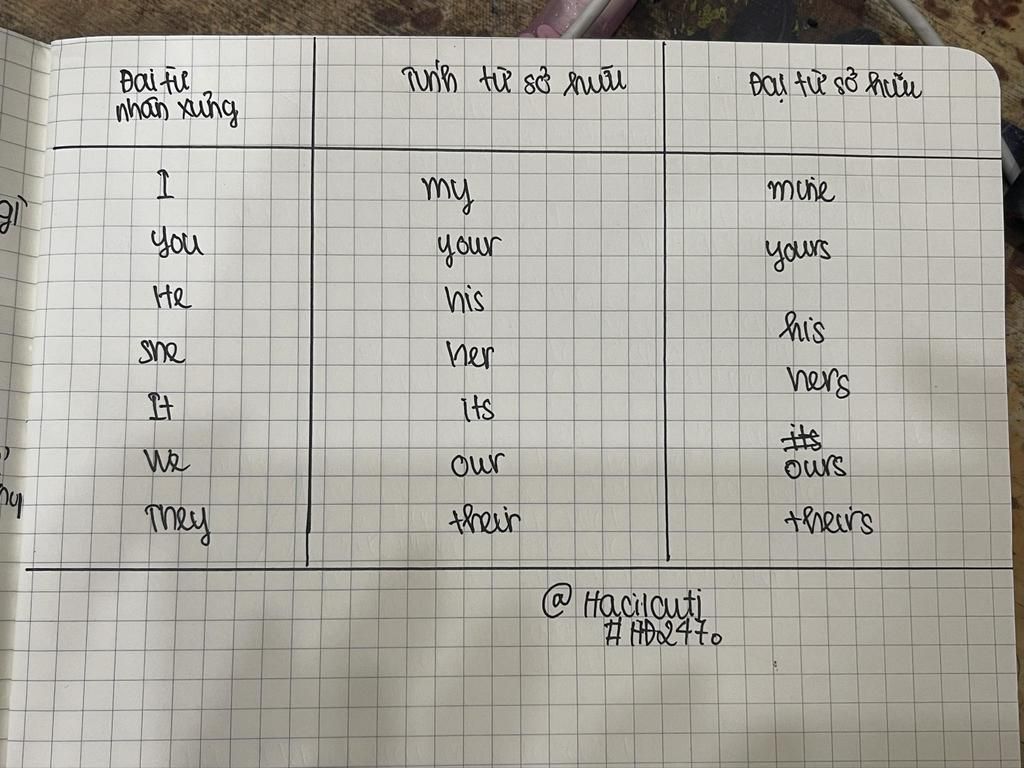 Đại từ nhân xưng | Tính từ sở hữu | Đại từ sở hữu
I my mine
you your yours
He his his
she her hers
It its its
We our ours
They their theirs
@Hacilcuti
#HĐ2470